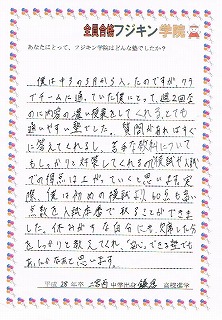 全員合格フジキン学院
あなたにとって、フジキン学院はどんな塾でしたか？
僕は中3の3月から入ったのですが、クラ
ブチームに通っていた僕にとって、週2回な
のに内容の濃い授業をしてくれる、とても
通いやすい塾でした。質問があればすぐ
に答えてくれるし、苦手な教科について
もしっかりと対策してくれるので模試や入試
での得点は上がっていくと思います。実
際、僕は初めの模試より60点も高い
点数を入試本番で取ることができま
した。休みがちな自分にも、欠席した分を
しっかりと教えてくれ、安心できる塾でも
あったかなあと思います。
平成28年卒 中学出身 鎌倉 高校進学